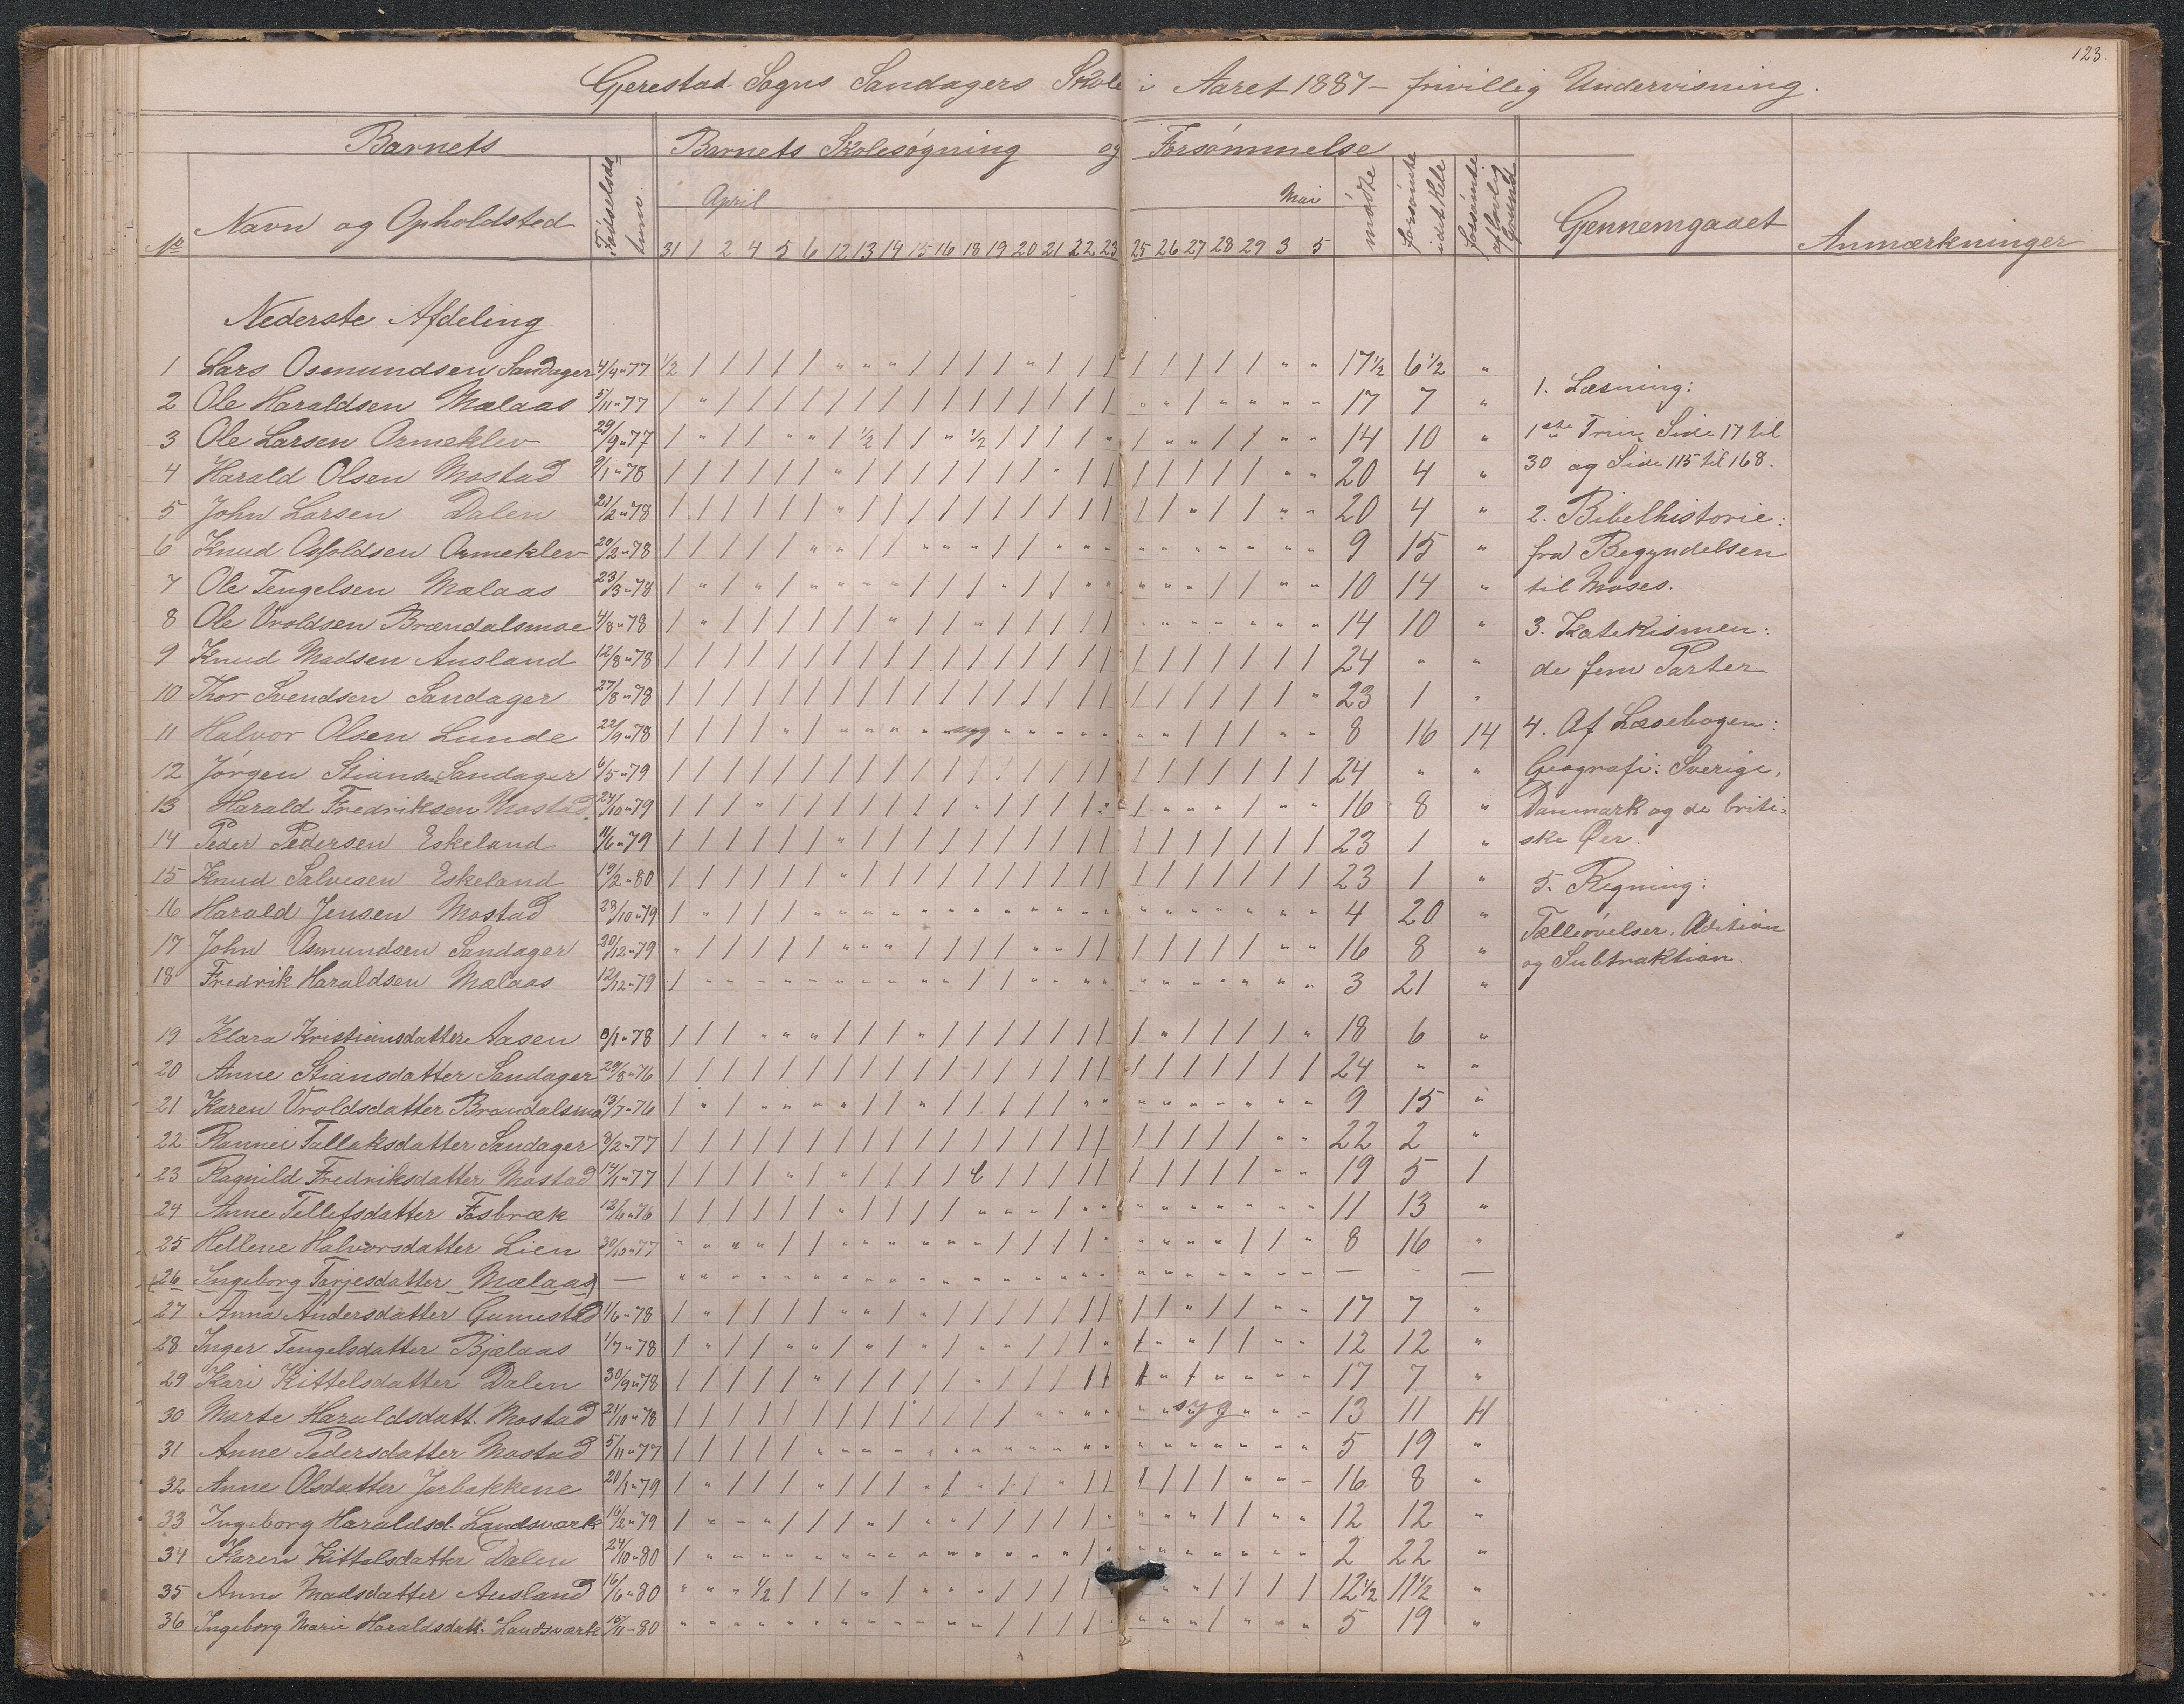 123.
Gjerestad Sogns Sandagers Skole i Aaret 1887 – frivillig Undervisning.
Barnets Barnets Skolesøgning og Forsømmelse
No Navn og Opholdsted Fødselsda- tum. April Mai mødte forsømte idethele forsømte af lovlig Grund Gennemgaaet Anmærkninger
31 1 2 4 5 6 12 13 14 15 16 18 19 20 21 22 23 25 26 27 28 29 3 5
Nederste Afdeling
1 Lars Osmundsen Sandager 4/4 " 77 ½ 17½ 6½ "
2 Ole Haraldsen Mælaas 5/11 " 77 17 7 "
3 Ole Larsen Ormeklev 29/9 " 77 ½ ½ 14 10 "
4 Harald Olsen Mostad 9/1 " 78 20 4 "
5 John Larsen Dalen 21/2 " 78 20 4 "
6 Knud Osfoldsen Ormeklev 20/2 " 78 9 15 "
7 Ole Tengelsen Mælaas 23/3 " 78 10 14 "
8 Ole Vroldsen Brændalsmoe 4/8 " 78 14 10 "
9 Knud Madsen Ausland 12/8 " 78 24 " "
10 Thor Svendsen Sandager 27/8 " 78 23 1 "
11 Halvor Olsen Lunde 22/9 " 78 syg 8 16 14
12 Jørgen Stiansen Sandager 6/5 " 79 24 " "
13 Harald Fredriksen Mostad 24/10 " 79 16 8 "
14 Peder Pedersen Eskeland 11/6 " 79 23 1 "
15 Knud Salvesen Eskeland 19/2 " 80 23 1 "
16 Harald Jensen Mostad 28/10 " 79 4 20 "
17 John Osmundsen Sandager 30/12 " 79 16 8 "
18 Fredrik Haraldsen Mælaas 12/12 " 79 3 21 "
19 Klara Kristiansdatter Aasen 8/1 " 78 18 6 "
20 Anne Stiansdatter Sandager 29/8 " 76 24 " "
21 Karen Vroldsdatter Brændalsmo 13/7 " 76 9 15 "
22 Rannei Tallaksdatter Sandager 8/2 " 77 22 2 "
23 Ragnild Fredriksdatter Mostad 14/1 " 77 19 5 1
24 Anne Tellefsdatter Fosbræk 12/6 " 76 11 13 "
25 Hellene Halvorsdatter Lien 30/10 " 77 8 16 "
(26 Ingeborg Tarjesdatter Mælaas) — — - —
27 Anna Andersdatter Gumestad 1/6 " 78 17 7 "
28 Inger Tengelsdatter Bjælaas 1/7 " 78 12 12 "
29 Kari Kittelsdatter Dalen 30/9 " 78 17 7 "
30 Marte Haraldsdatt. Mostad 21/10 " 78 syg 13 11 11
31 Anne Pedersdatter Mostad 5/11 " 77 5 19 "
32 Anne Olsdatter Jorbakkene 20/1 " 79 16 8 "
33 Ingeborg Haraldsd. Landsværk 16/2 " 79 12 12 "
34 Karen Kittelsdatter Dalen 24/10 " 80 2 22 "
35 Anne Madsdatter Ausland 16/6 " 80 ½ 12½ 11½ "
36 Ingeborg Marie Haraldsdatt. Landsværk 15/11 – 80 5 19 "
1. Læsning:
1ste Trin Side 17 til
30 og Side 115 til 168.
2. Bibelhistorie:
fra Begyndelsen
til Moses.
3. Katekismen:
de fem Parter
4. Af Læsebogen:
Geografi: Sverige,
Danmark og de briti-
ske Øer.
5. Regning:
Tælleøvelser. Adition
og Subtraktion.